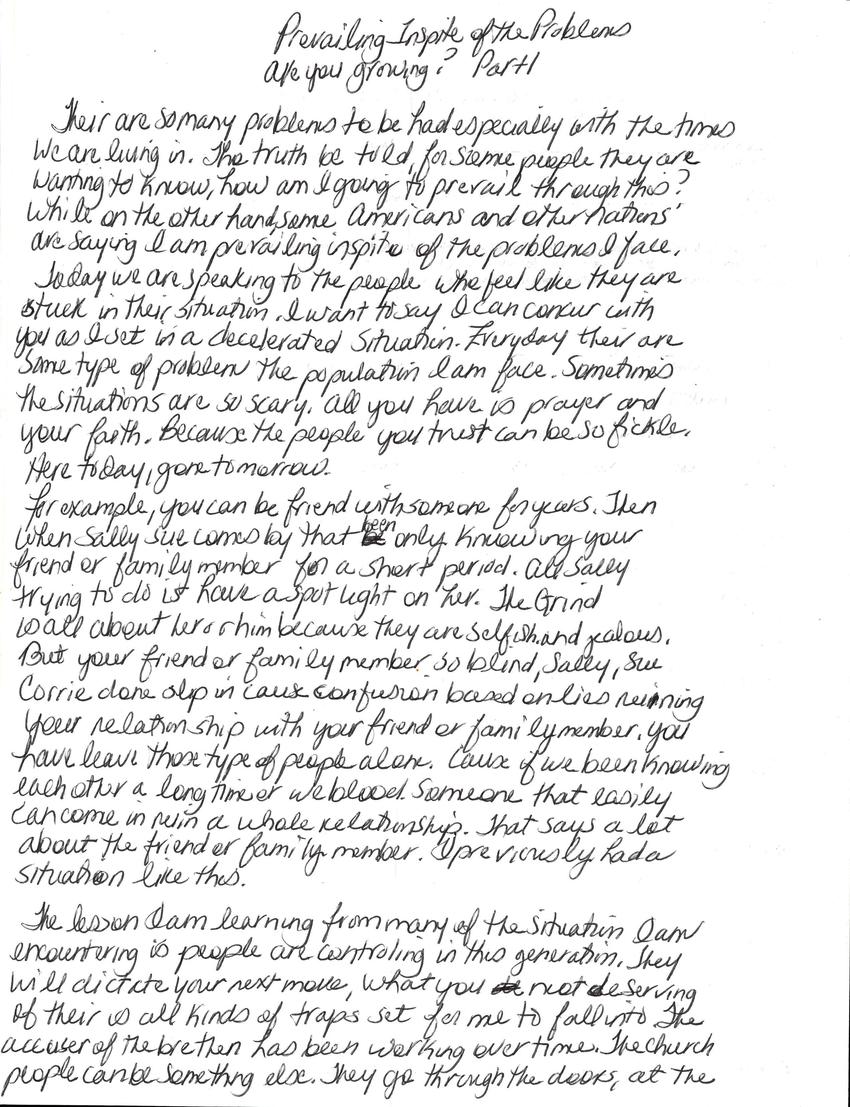 Prevailing Inspite of the Problems
Are you growing? Part 1
Their are so many problems to be had especially with the times
we are living in. The truth be told, for some people they are
wanting to know, how am I going to prevail through this?
While on the other hand, some Americans and other nations'
are saying I am prevailing inspite of the problems I face.
Today we are speaking to the people who feel like they are
stuck in their situation. I want to say I can concur with
you as I set in a decelerated situation. Everyday their are
some type of problem the population I am face. Sometimes
the situations are so scary. All you have is prayer and
your faith. Because the people you trust can be so fickle.
Here today, gone tomorrow.
For example, you can be friend with someone for years. Then
when Sally sue comes by that been only knowing your
friend or family member for a short period. All Sally
trying to do is have a spot light on her. The Grind
is all about her or him because they are selfish and jealous.
But your friend or family member so blind, Sally, Sue
Corrie done slip in cause confusion based on lies ruining
your relationship with your friend or family member. You
have leave those type of people alone. Cause if we been knowing
each other a long time or we blood. Someone that easily
can come in ruin a whole relationship. That says a lot
about the friend or family member. I previously had a
situation like this.
The lesson I am learning from many of the situation I am
encountering is people are controling in this generation. They
will dictate your next move, what you not deserving
of their is all kinds of traps set for me to fall into. The
accuser of the brethen has been working overtime. The church
people can be something else. They go through the doors, at the